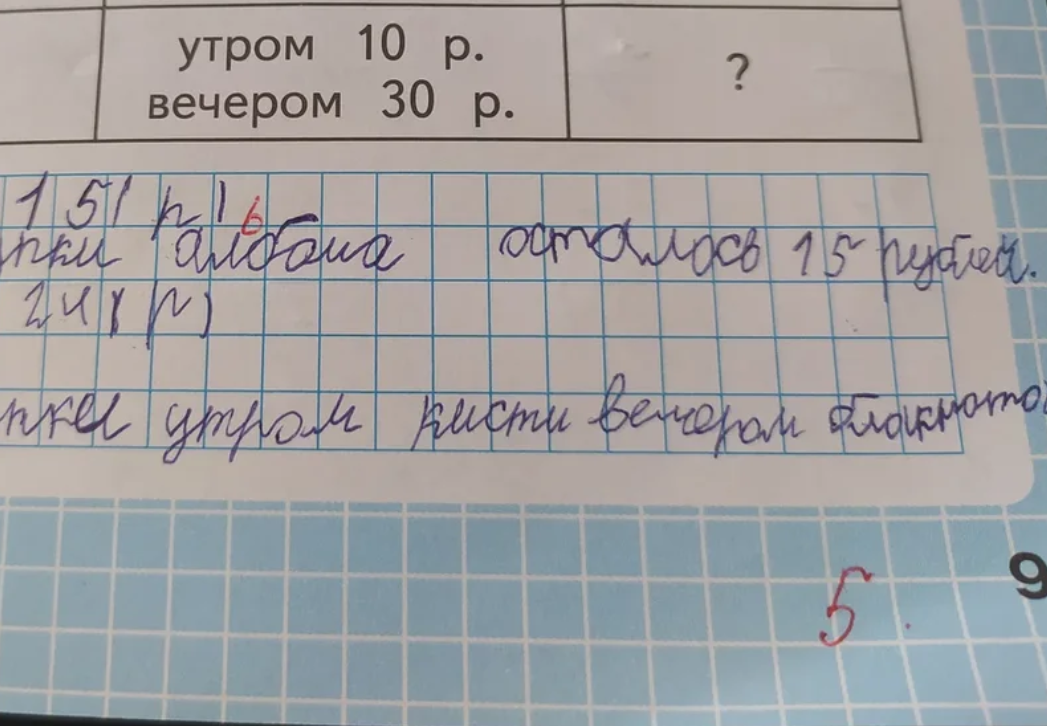 утром 10 р.
?
вечером 30 р.
15(р)
ь
пки алюбома осталось 15 рублей.
24(р)
пки утром кисти вечером блокното
9
5.